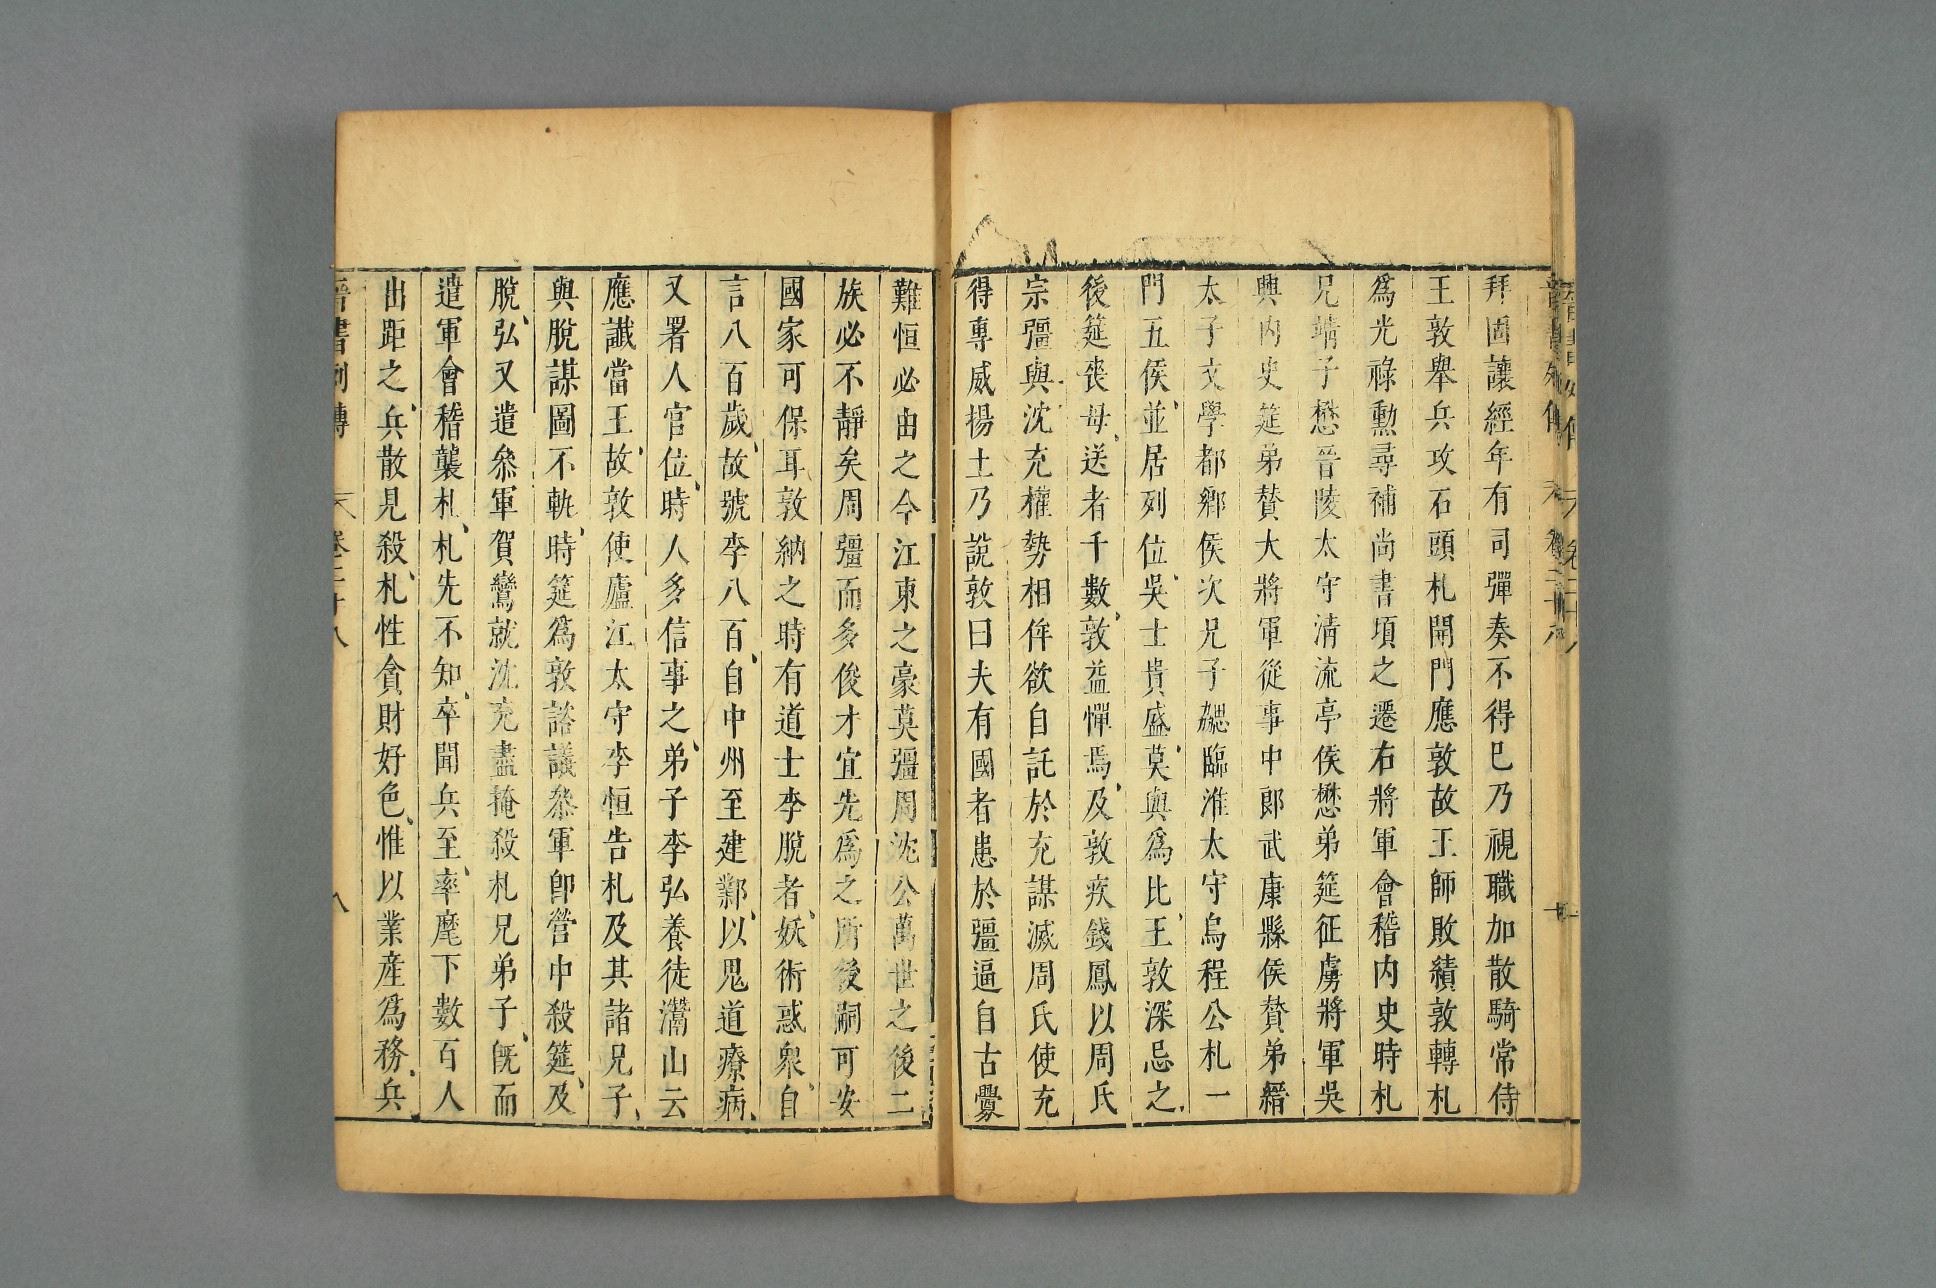 拜固讓經年有司彈奏不得已乃視職加散騎常侍
王敦舉兵攻石頭札開門應敦故王師敗績敦轉札
爲光祿勳尋補尚書頃之遷右將軍會稽內史時札
兄靖子懋晉陵太守清流亭侯懋弟筵征虜將軍吳
興內史筵弟贊大將軍從事中郎武康縣侯贊弟縉
太子文學都鄉侯次兄子勰臨淮太守烏程公札一
門五侯並居列位吳士貴盛莫與爲比王敦深忌之
後筵喪母送者千數敦益憚焉及敦疾錢鳳以周氏
宗彊與沈充權勢相侔欲自託於充謀滅周氏使充
得專威揚土乃說敦曰夫有國者患於彊逼自古釁
難恒必由之今江東之豪莫彊周沈公萬世之後二
族必不靜矣周彊而多俊才宜先爲之所後嗣可安
國家可保耳敦納之時有道士李脫者妖術惑衆自
言八百歲故號李八百自中州至建鄴以鬼道療病
又署人官位時人多信事之弟子李弘養徒灊山云
應讖當王故敦使廬江太守李恒告札及其諸兄子
與脫謀圖不軌時筵爲敦諮議叅軍卽營中殺筵及
脫弘又遣叅軍賀鸞就沈充盡掩殺札兄弟子旣而
遣軍會稽襲札札先不知卒聞兵至率麾下數百人
出距之兵散見殺札性貪財好色惟以業產爲務兵
晉書列傳 卷二十八 八